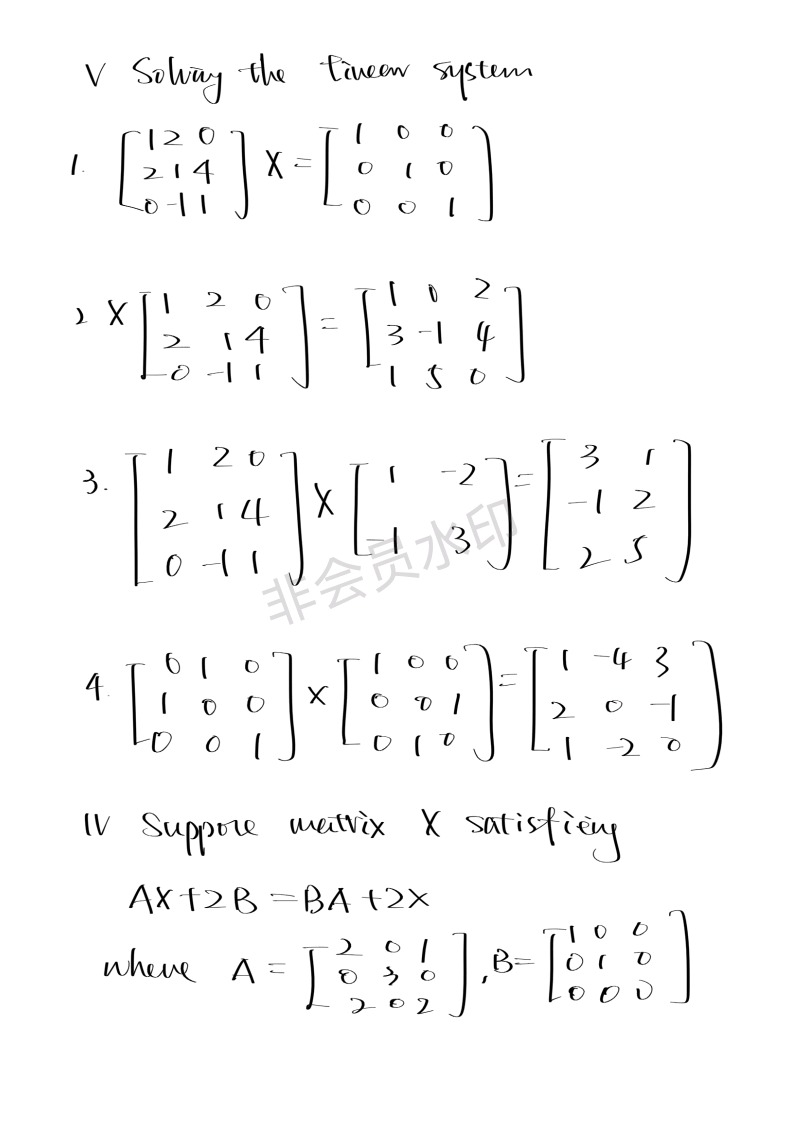 V Solving the linear system
1. [1 2 0; 2 1 4; 0 -1 1] X = [1 0 0; 0 1 0; 0 0 1]
2 X [1 2 0; 2 1 4; 0 -1 1] = [1 0 2; 3 -1 4; 1 5 0]
3. [1 2 0; 2 1 4; 0 -1 1] X [1 -2; -1 3] = [3 1; -1 2; 2 5]
非会员水印
4. [0 1 0; 1 0 0; 0 0 1] X [1 0 0; 0 0 1; 0 1 0] = [1 -4 3; 2 0 -1; 1 -2 0]
IV Suppose matrix X satisfieng
AX+2B=BA+2X
where A = [2 0 1; 0 3 0; 2 0 2], B= [1 0 0; 0 1 0; 0 0 0]